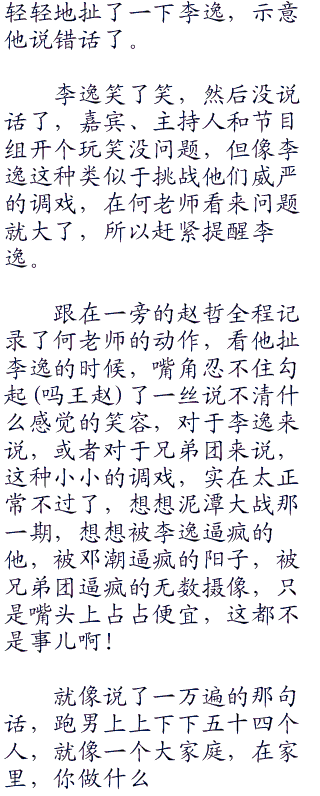 轻轻地扯了一下李逸，示意
他说错话了。
李逸笑了笑，然后没说
话了，嘉宾、主持人和节目
组开个玩笑没问题，但像李
逸这种类似于挑战他们威严
的调戏，在何老师看来问题
就大了，所以赶紧提醒李
逸。
跟在一旁的赵哲全程记
录了何老师的动作，看他扯
李逸的时候，嘴角忍不住勾
起(吗王赵)了一丝说不清什
么感觉的笑容，对于李逸来
说，或者对于兄弟团来说，
这种小小的调戏，实在太正
常不过了，想想泥潭大战那
一期，想想被李逸逼疯的
他，被邓潮逼疯的阳子，被
兄弟团逼疯的无数摄像，只
是嘴头上占占便宜，这都不
是事儿啊！
就像说了一万遍的那句
话，跑男上上下下五十四个
人，就像一个大家庭，在家
里，你做什么